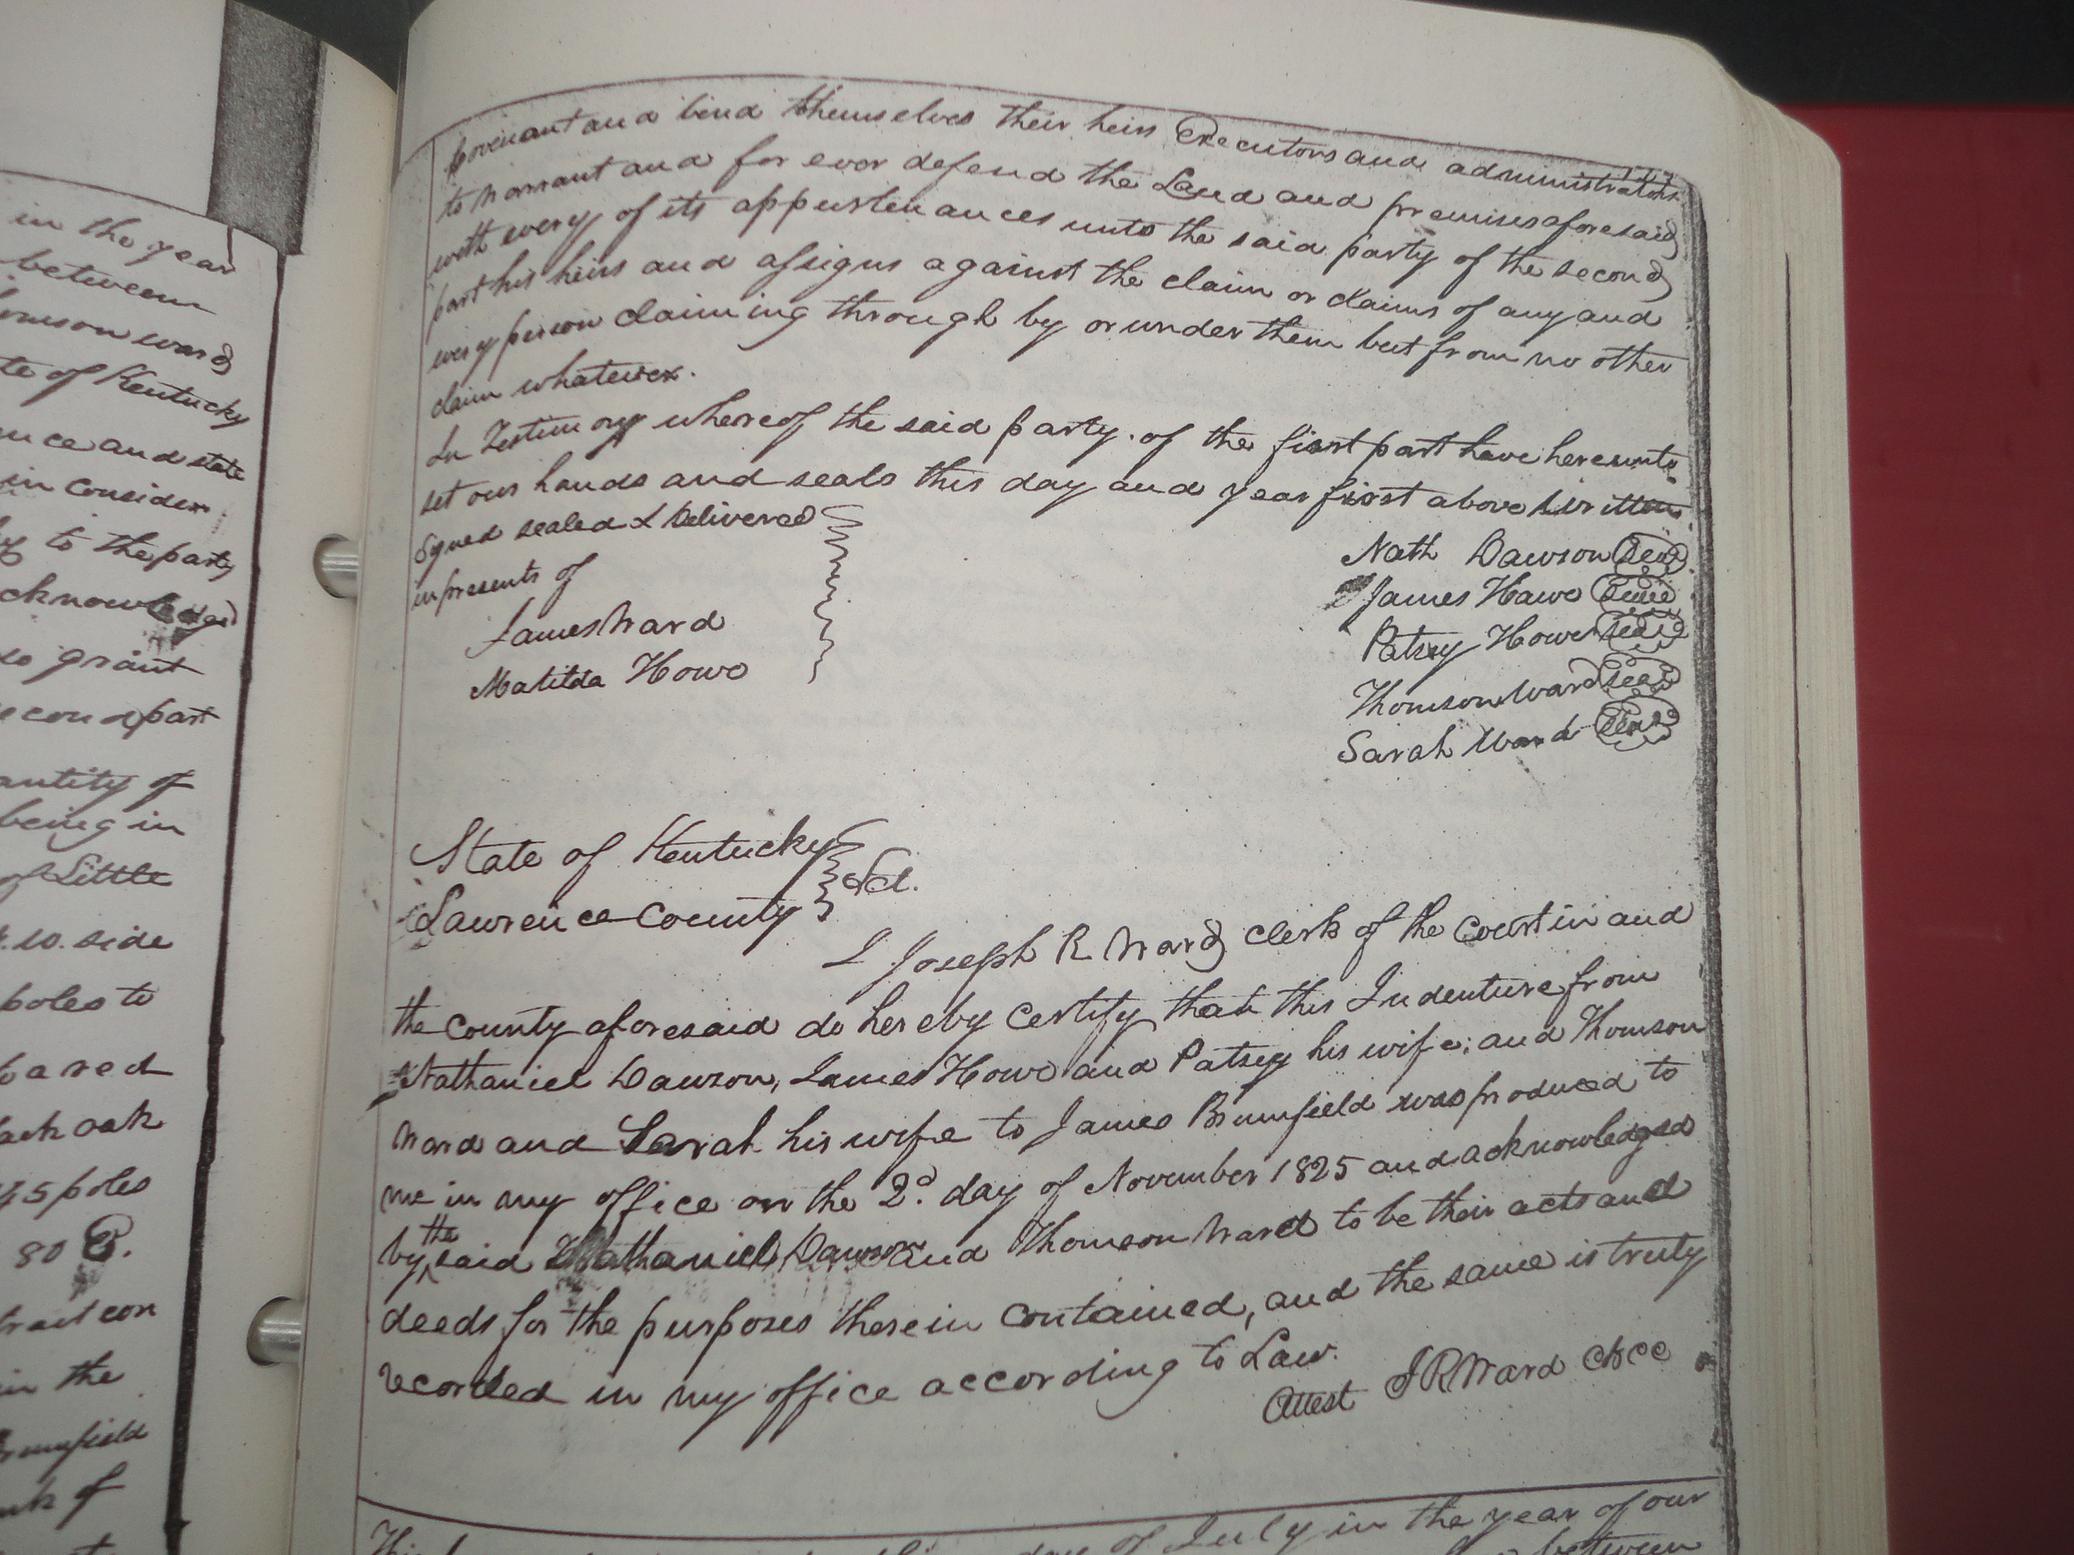 in the year
between
omson ward
te of Kentucky
nce and state
in consider
ly to the party
cknowledged
do grant
second part
antity of
being in
of Little
N.W. side
poles to
ack oak
45 poles
80 E.
tract con
in the
rumfield
Covenant and bind themselves their heirs Executors and administrators
to warrant and for ever defend the Land and premises aforesaid
with every of its appurtenances unto the said party of the second
part his heirs and assigns against the claim or claims of any and
every person claiming through by or under them but from no other
claim whatever.
In Testimony whereof the said party of the first part have hereunto
set our hands and seals this day and year first above written
Signed sealed & Delivered
in presents of
James Ward
Matilda Howe
Nath Dawson Seal
James Howe Seal
Patsey Howe Seal
Thomson Ward Seal
Sarah Ward Seal
State of Kentucky
Lawrence County Sct.
I Joseph R Ward clerk of the court in and
the county aforesaid do hereby certify that this Indenture from
Nathaniel Dawson, James Howe and Patsey his wife; and Thomson
Ward and Sarah his wife to James Brumfield was produced to
me in my office on the 2d. day of November 1825 and acknowledged
by the said Nathaniel Dawson and Thomson Ward to be their acts and
deeds for the purposes therein contained, and the same is truly
recorded in my office according to Law.
Attest J R Ward clkcc
day of July in the year of our
between